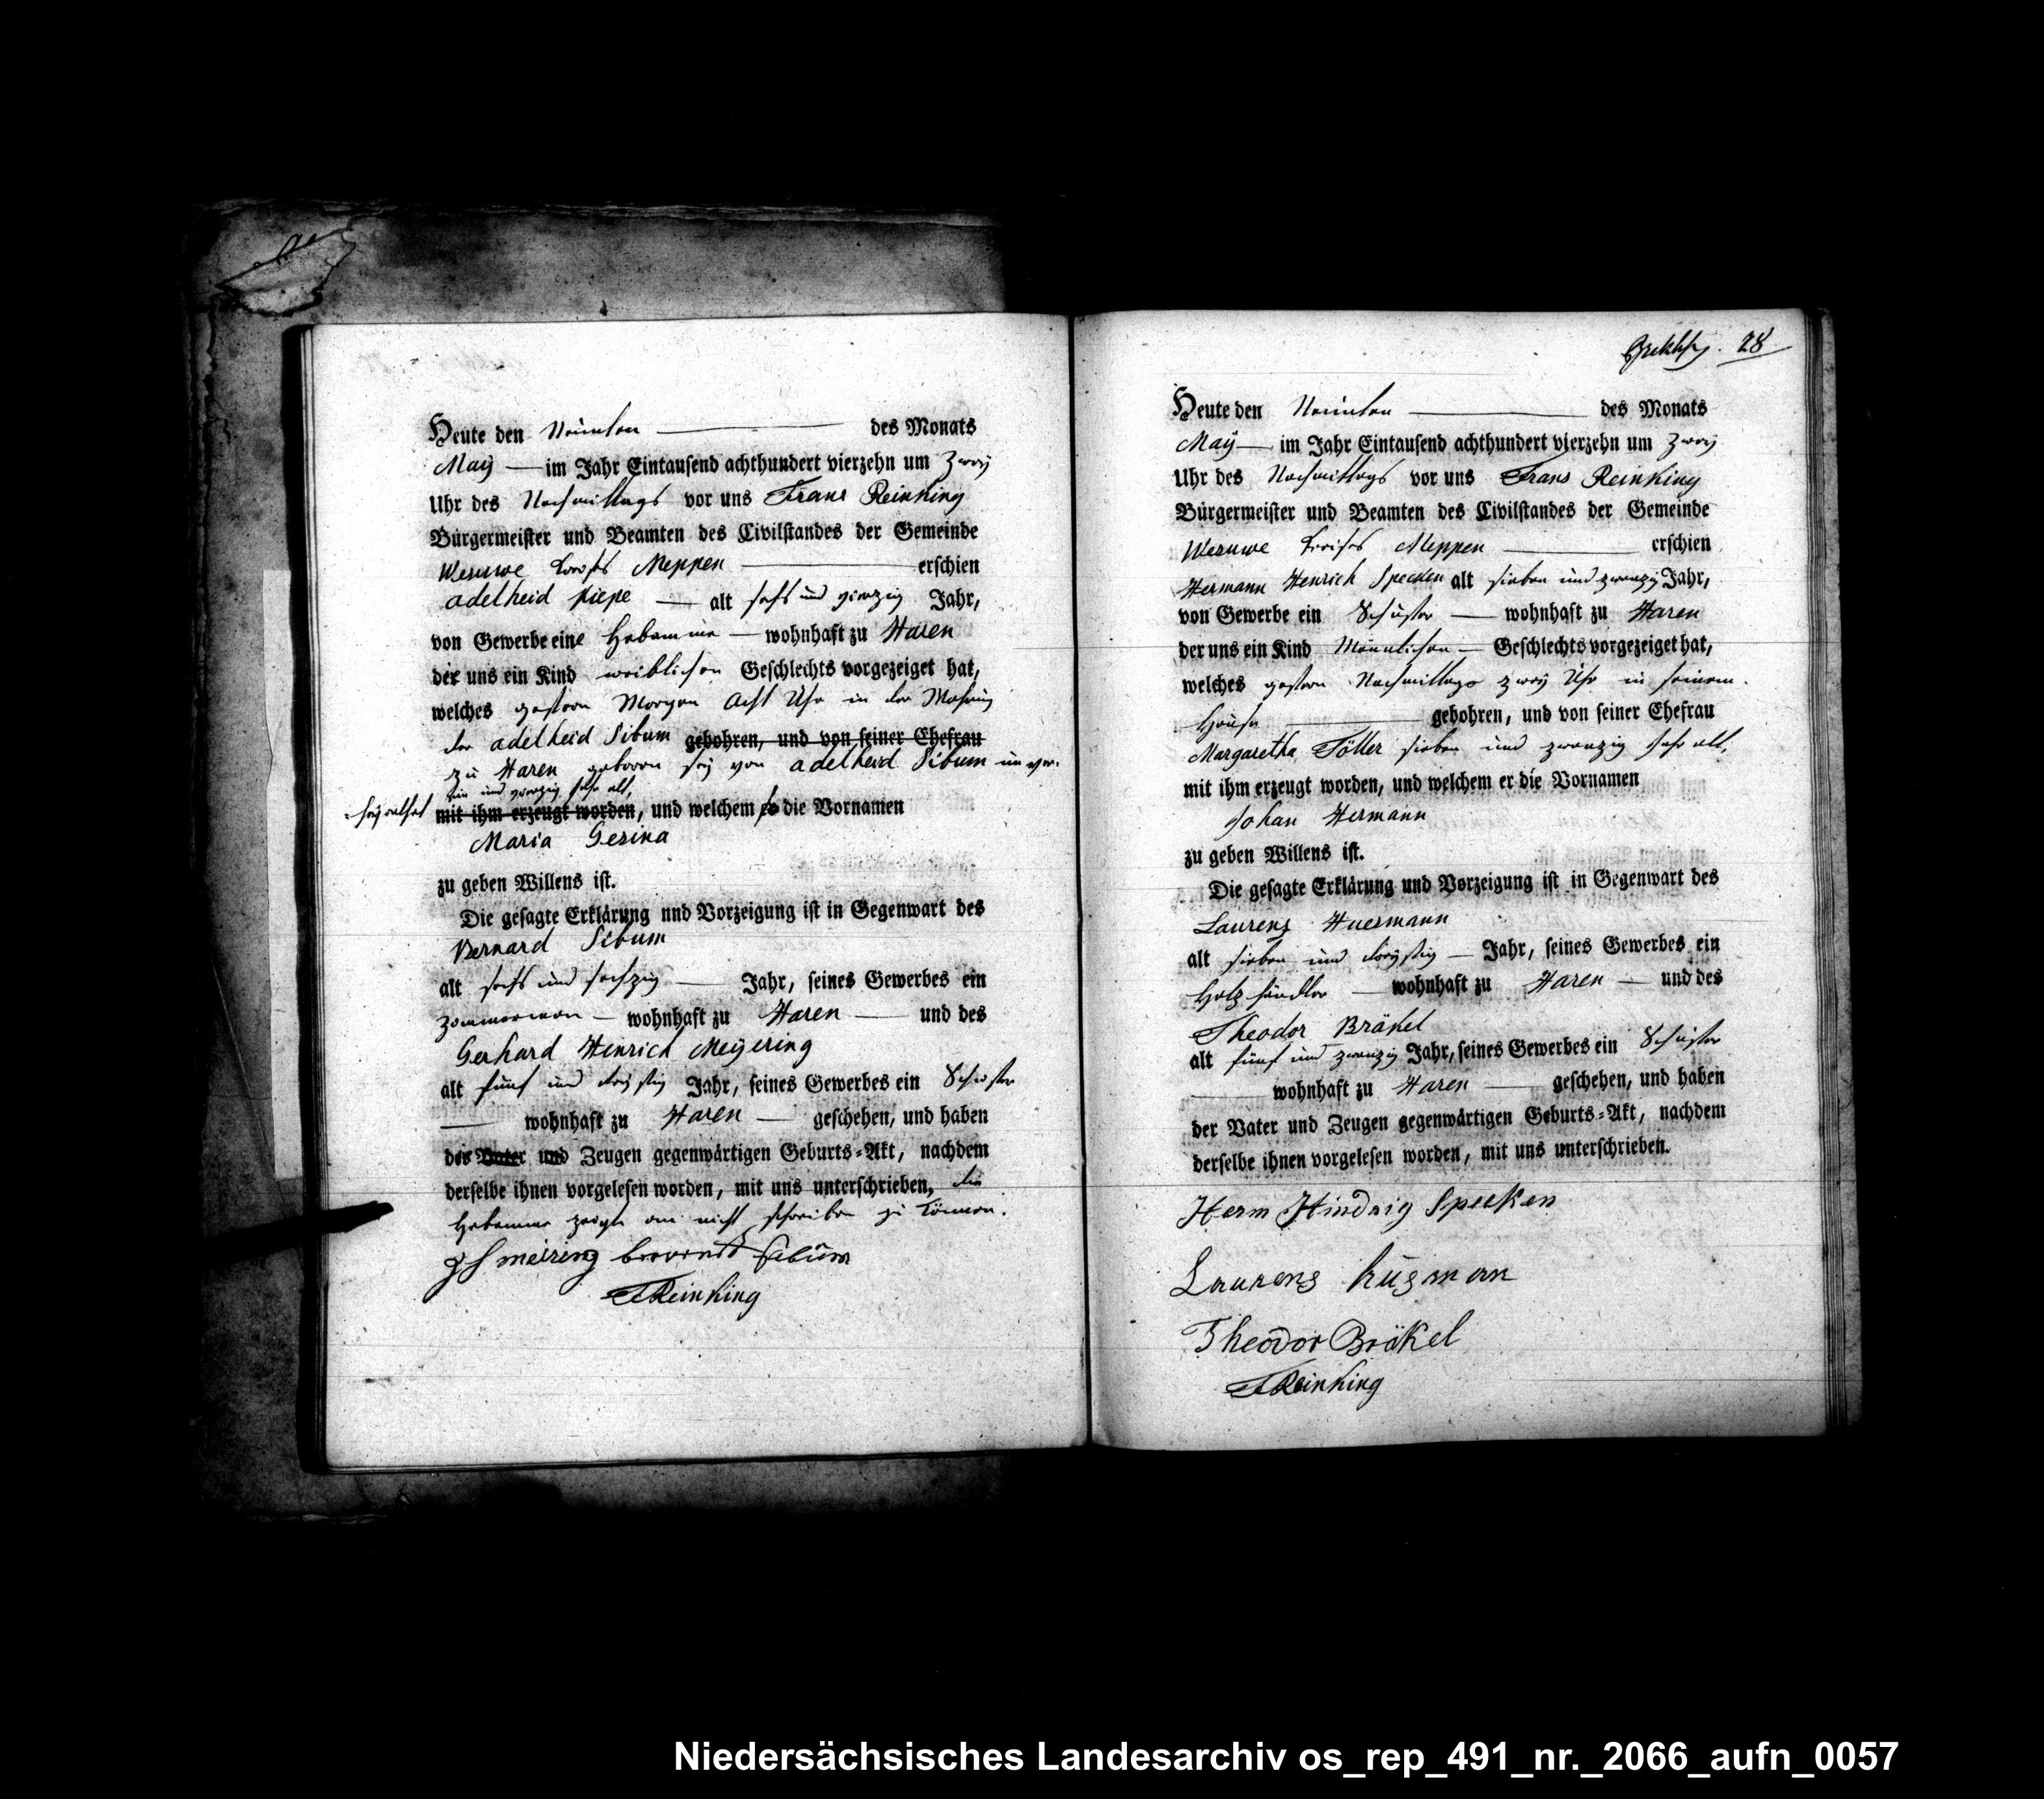 Heute den Neünten des Monats
Maÿ im Jahr Eintausend achthundert vierzehn um Zweÿ
Uhr des Nachmittags vor uns Frans Reinking
Bürgermeister und Beamten des Civilstandes der Gemeinde
Wesuwe Kreises Meppen erschien
adelheid piepe alt sechs und vierzig Jahr,
von Gewerbe eine Hebamme wohnhaft zu Haren
der uns ein Kind weiblichen Geschlechts vorgezeiget hat,
welches gestern Morgen Acht Uhr in der Wohnung
der adelheid Sibum gebohren, und von seiner Ehefrau
zu Haren geboren seÿ von adelheid Sibum unver-
und zwanzig Jahr alt,
heÿrathet mit ihm erzeugt worden, und welchem die Vornamen
Maria Gesina
zu geben Willens ist.
Die gesagte Erklärung und Vorzeigung ist in Gegenwart des
Bernard Sibum
alt sechs und sechzig Jahr, seines Gewerbes ein
Zimmerman wohnhaft zu Haren und des
Gerhard Henrich Meÿering
alt fünf und dreÿstig Jahr, seines Gewerbes ein Schuster
wohnhaft zu Haren geschehen, und haben
die Vater und Zeugen gegenwärtigen Geburts-Akt, nachdem
derselbe ihnen vorgelesen worden, mit uns unterschrieben, die
Hebamme zeigte an nicht schreiben zu können.
G H meiring berrendt Sibüm
F Reinking
28
Heute den Neünten des Monats
Maÿ im Jahr Eintausend achthundert vierzehn um Zweÿ
Uhr des Nachmittags vor uns Frans Reinking
Bürgermeister und Beamten des Civilstandes der Gemeinde
Wesuwe Kreises Meppen erschien
Hermann Henrich Specken alt sieben und zwanzig Jahr,
von Gewerbe ein Schuster wohnhaft zu Haren
der uns ein Kind Männlichen Geschlechts vorgezeiget hat,
welches gestern Nachmittags zweÿ Uhr in seinem
Hause gebohren, und von seiner Ehefrau
Margaretha Töller sieben und zwanzig Jahr alt,
mit ihm erzeugt worden, und welchem er die Vornamen
Johan Hermann
zu geben Willens ist.
Die gesagte Erklärung und Vorzeigung ist in Gegenwart des
Laurenz Huesmann
alt sieben und dreÿstig Jahr, seines Gewerbes ein
Holz händler wohnhaft zu Haren und des
Theodor Bräkel
alt fünf und zwanzig Jahr, seines Gewerbes ein Schuster
wohnhaft zu Haren geschehen, und haben
der Vater und Zeugen gegenwärtigen Geburts-Akt, nachdem
derselbe ihnen vorgelesen worden, mit uns unterschrieben.
Herm Hindrig Specken
Laurens hüsman
Theodor Bräkel
F Reinking
Niedersächsisches Landesarchiv os_rep_491_nr._2066_aufn_0057